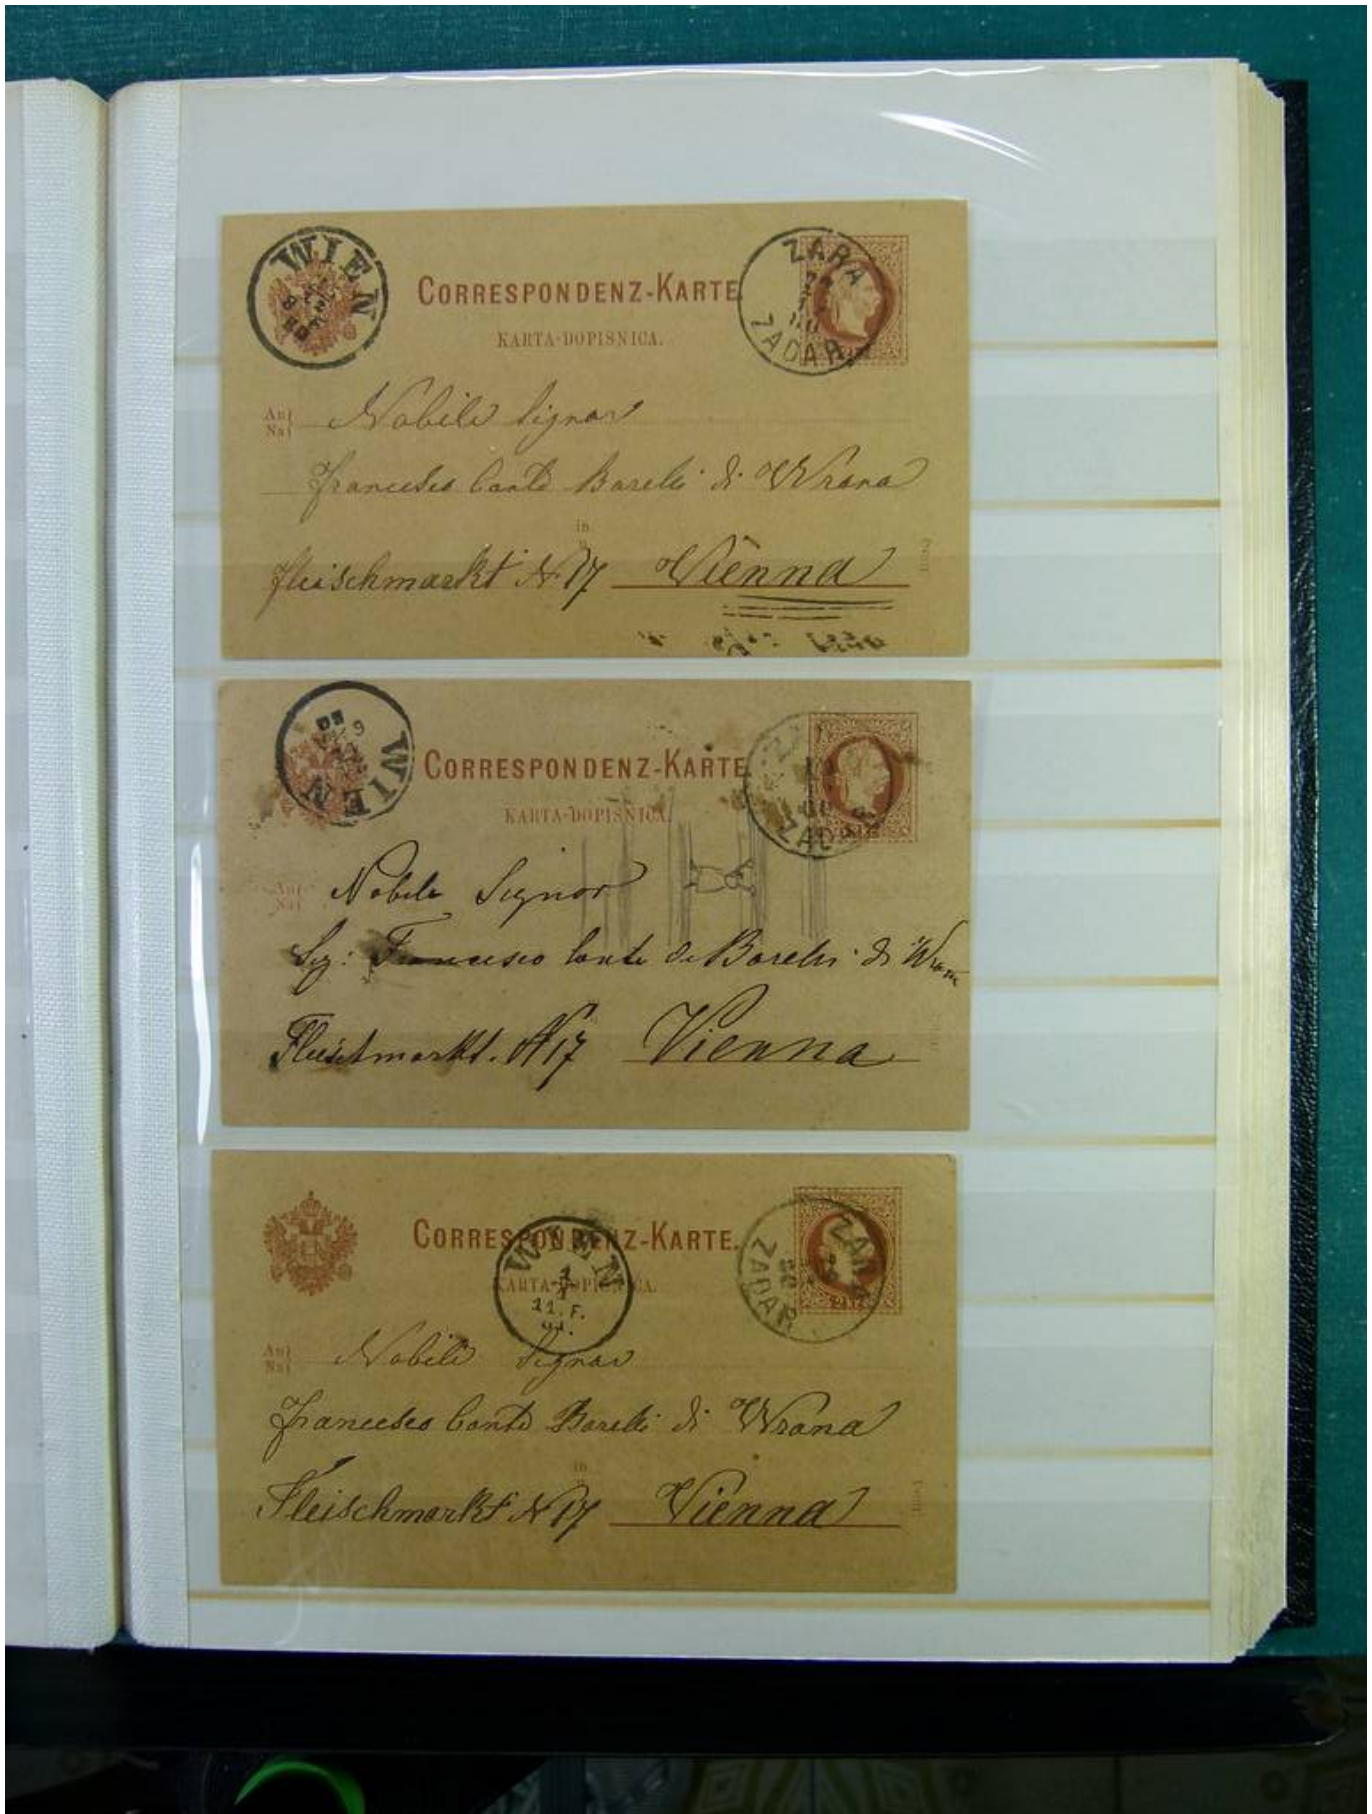 WIEN
ZARA
ZADAR
CORRESPONDENZ-KARTE
KARTA-DOPISNICA.
An
Na
Nobile Signor
Francesco Conte Borelli di Wrana
in
Fleischmarkt N 17 Vienna
WIEN
ZADAR
CORRESPONDENZ-KARTE
KARTA-DOPISNICA.
An
Na
Nobile Signor
Sig: Francesco Conte de Borelli di Wrana
Fleischmarkt. N 17 Vienna
CORRESPONDENZ-KARTE.
KARTA-DOPISNICA.
WIEN
1
1
11. F.
ZARA
80
ZADAR
An
Na
Nobile Signor
Francesco Conte Borelli di Wrana
in
Fleischmarkt N 17 Vienna